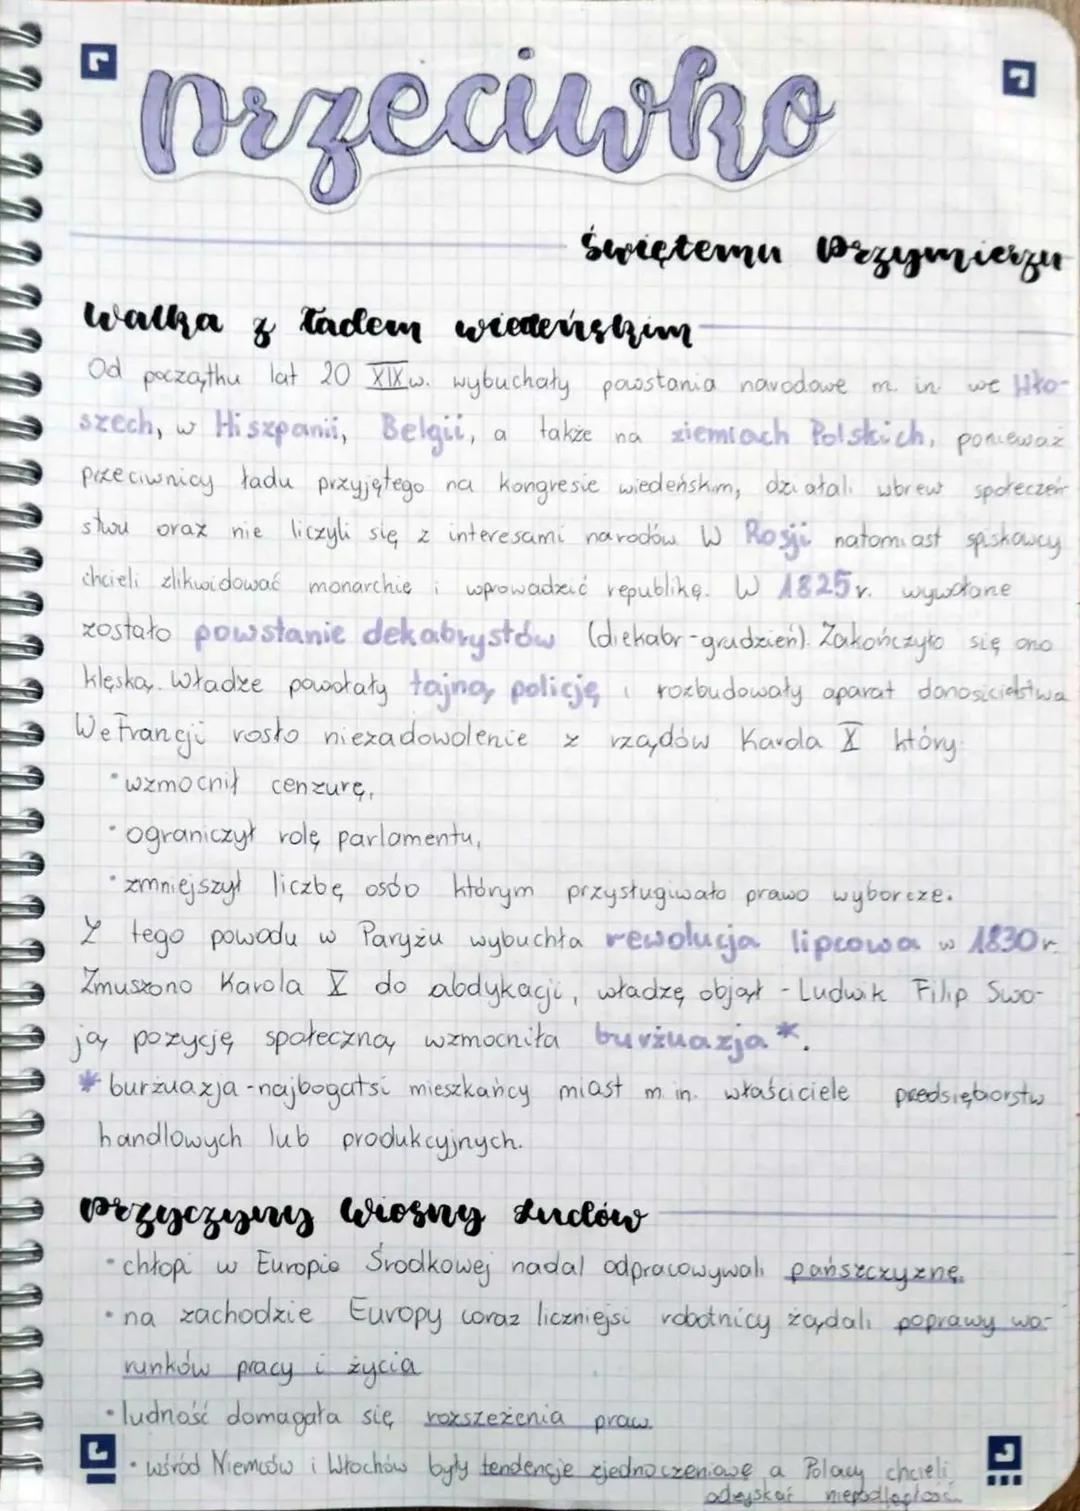 przeciwko
Świętemu Przymierzu
Walka z ładem wiedeńskim
Od początku lat 20 XIX w. wybuchały powstania narodowe m. in. we Wło-
szech, w Hiszpanii, Belgii, a także na ziemiach Polskich, ponieważ
przeciwnicy ładu przyjętego na kongresie wiedeńskim, działali wbrew społeczeń
stwu oraz nie liczyli się z interesami narodów W Rosji natomiast spiskowcy
chcieli zlikwidować monarchię i wprowadzić republikę. W 1825r. wywołane
zostało powstanie dekabrystów (diekabr-grudzień). Zakończyło się ono
klęską. Władze powołały tajną policję i rozbudowały aparat donosicielstwa
We Francji rosło niezadowolenie z rządów Karola X który:
• wzmocnił cenzurę,
• ograniczył rolę parlamentu,
• zmniejszył liczbę osób którym przysługiwało prawo wyborcze.
Z tego powodu w Paryżu wybuchła rewolucja lipcowa w 1830r.
Zmuszono Karola X do abdykacji, władzę objął - Ludwik Filip Swo-
ją pozycję społeczną wzmocniła burżuazja*.
* burżuazja - najbogatsi mieszkańcy miast m. in. właściciele predsiębiorstw
handlowych lub produkcyjnych.
Przyczyny Wiosny Ludów
• chłopi w Europie Środkowej nadal odpracowywali pańszczyznę.
• na zachodzie Europy coraz liczniejsi robotnicy żądali poprawy wa-
runków pracy i życia
• ludność domagała się rozszeżenia praw.
• wśród Niemców i Włochów były tendencje zjednoczeniowe a Polacy chcieli
odzyskać niepodległość.